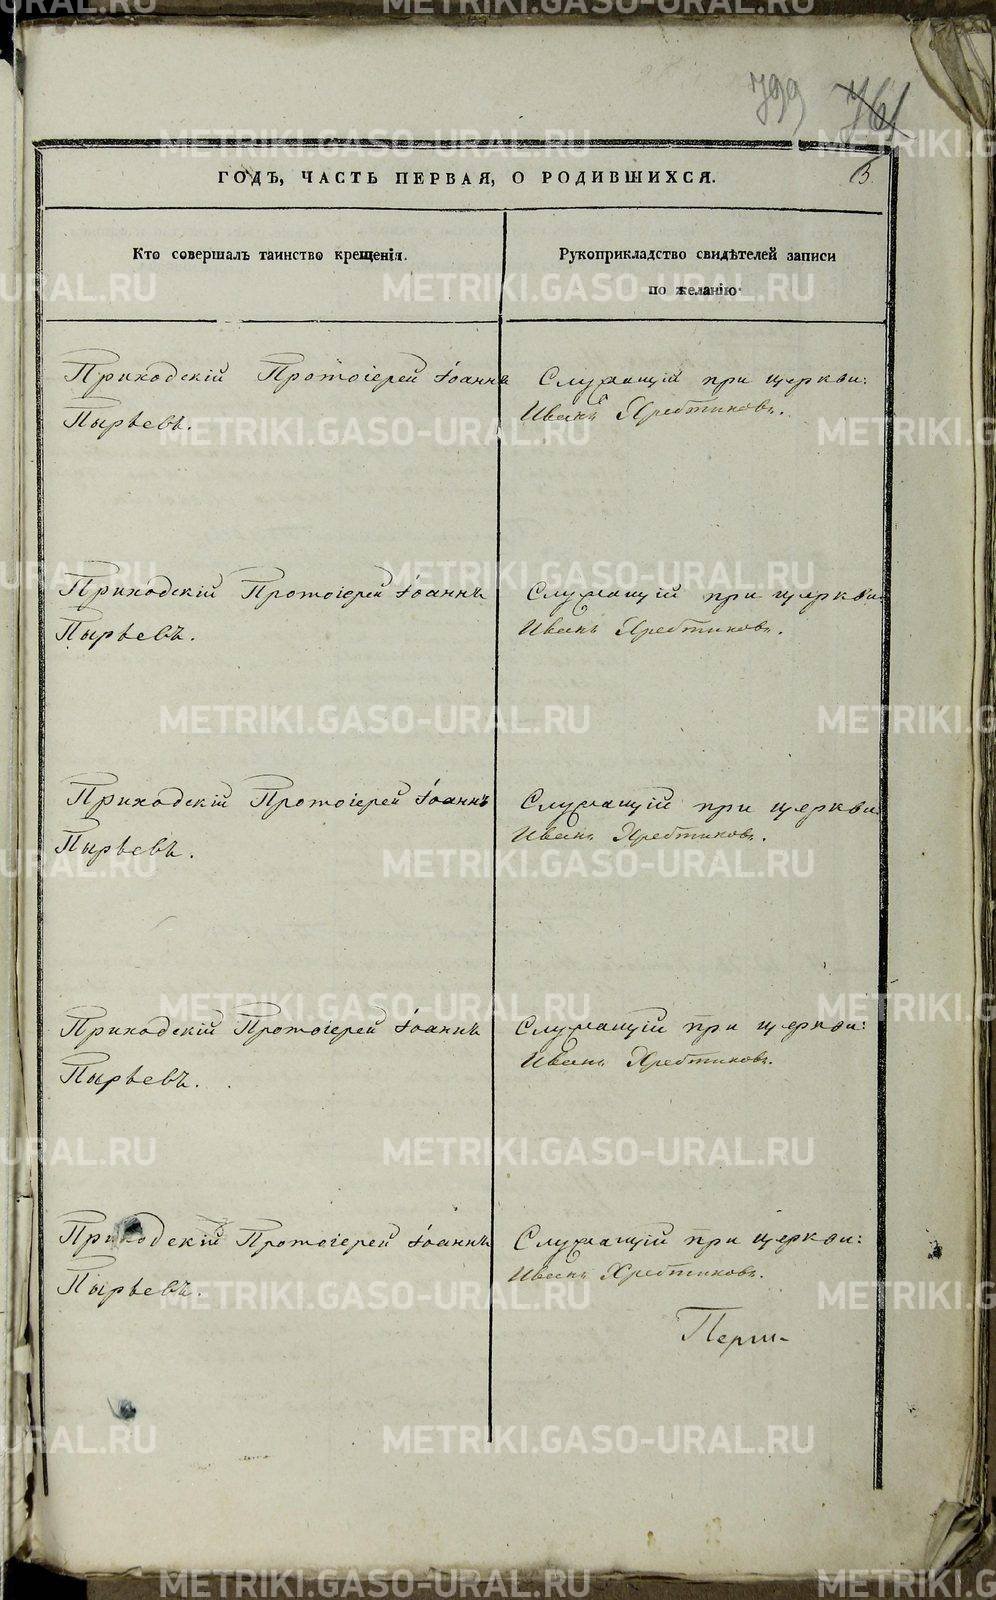 799 761
ГОДЪ, ЧАСТЬ ПЕРВАЯ, О РОДИВШИХСЯ.
Кто совершалъ таинство крещенія.
Рукоприкладство свидѣтелей записи
по желанію
Приходскій Протоіерей Іоаннъ
Пырьевъ.
Служащій при церкви:
Иванъ Хребтиковъ.
Приходскій Протоіерей Іоаннъ
Пырьевъ.
Служащій при церкви
Иванъ Хребтиковъ.
Приходскій Протоіерей Іоаннъ
Пырьевъ.
Служащій при церкви
Иванъ Хребтиковъ.
Приходскій Протоіерей Іоаннъ
Пырьевъ.
Служащій при церкви:
Иванъ Хребтиковъ.
Приходскій Протоіерей Іоаннъ
Пырьевъ.
Служащій при церкви:
Иванъ Хребтиковъ.
METRIKI.GASO-URAL.RU